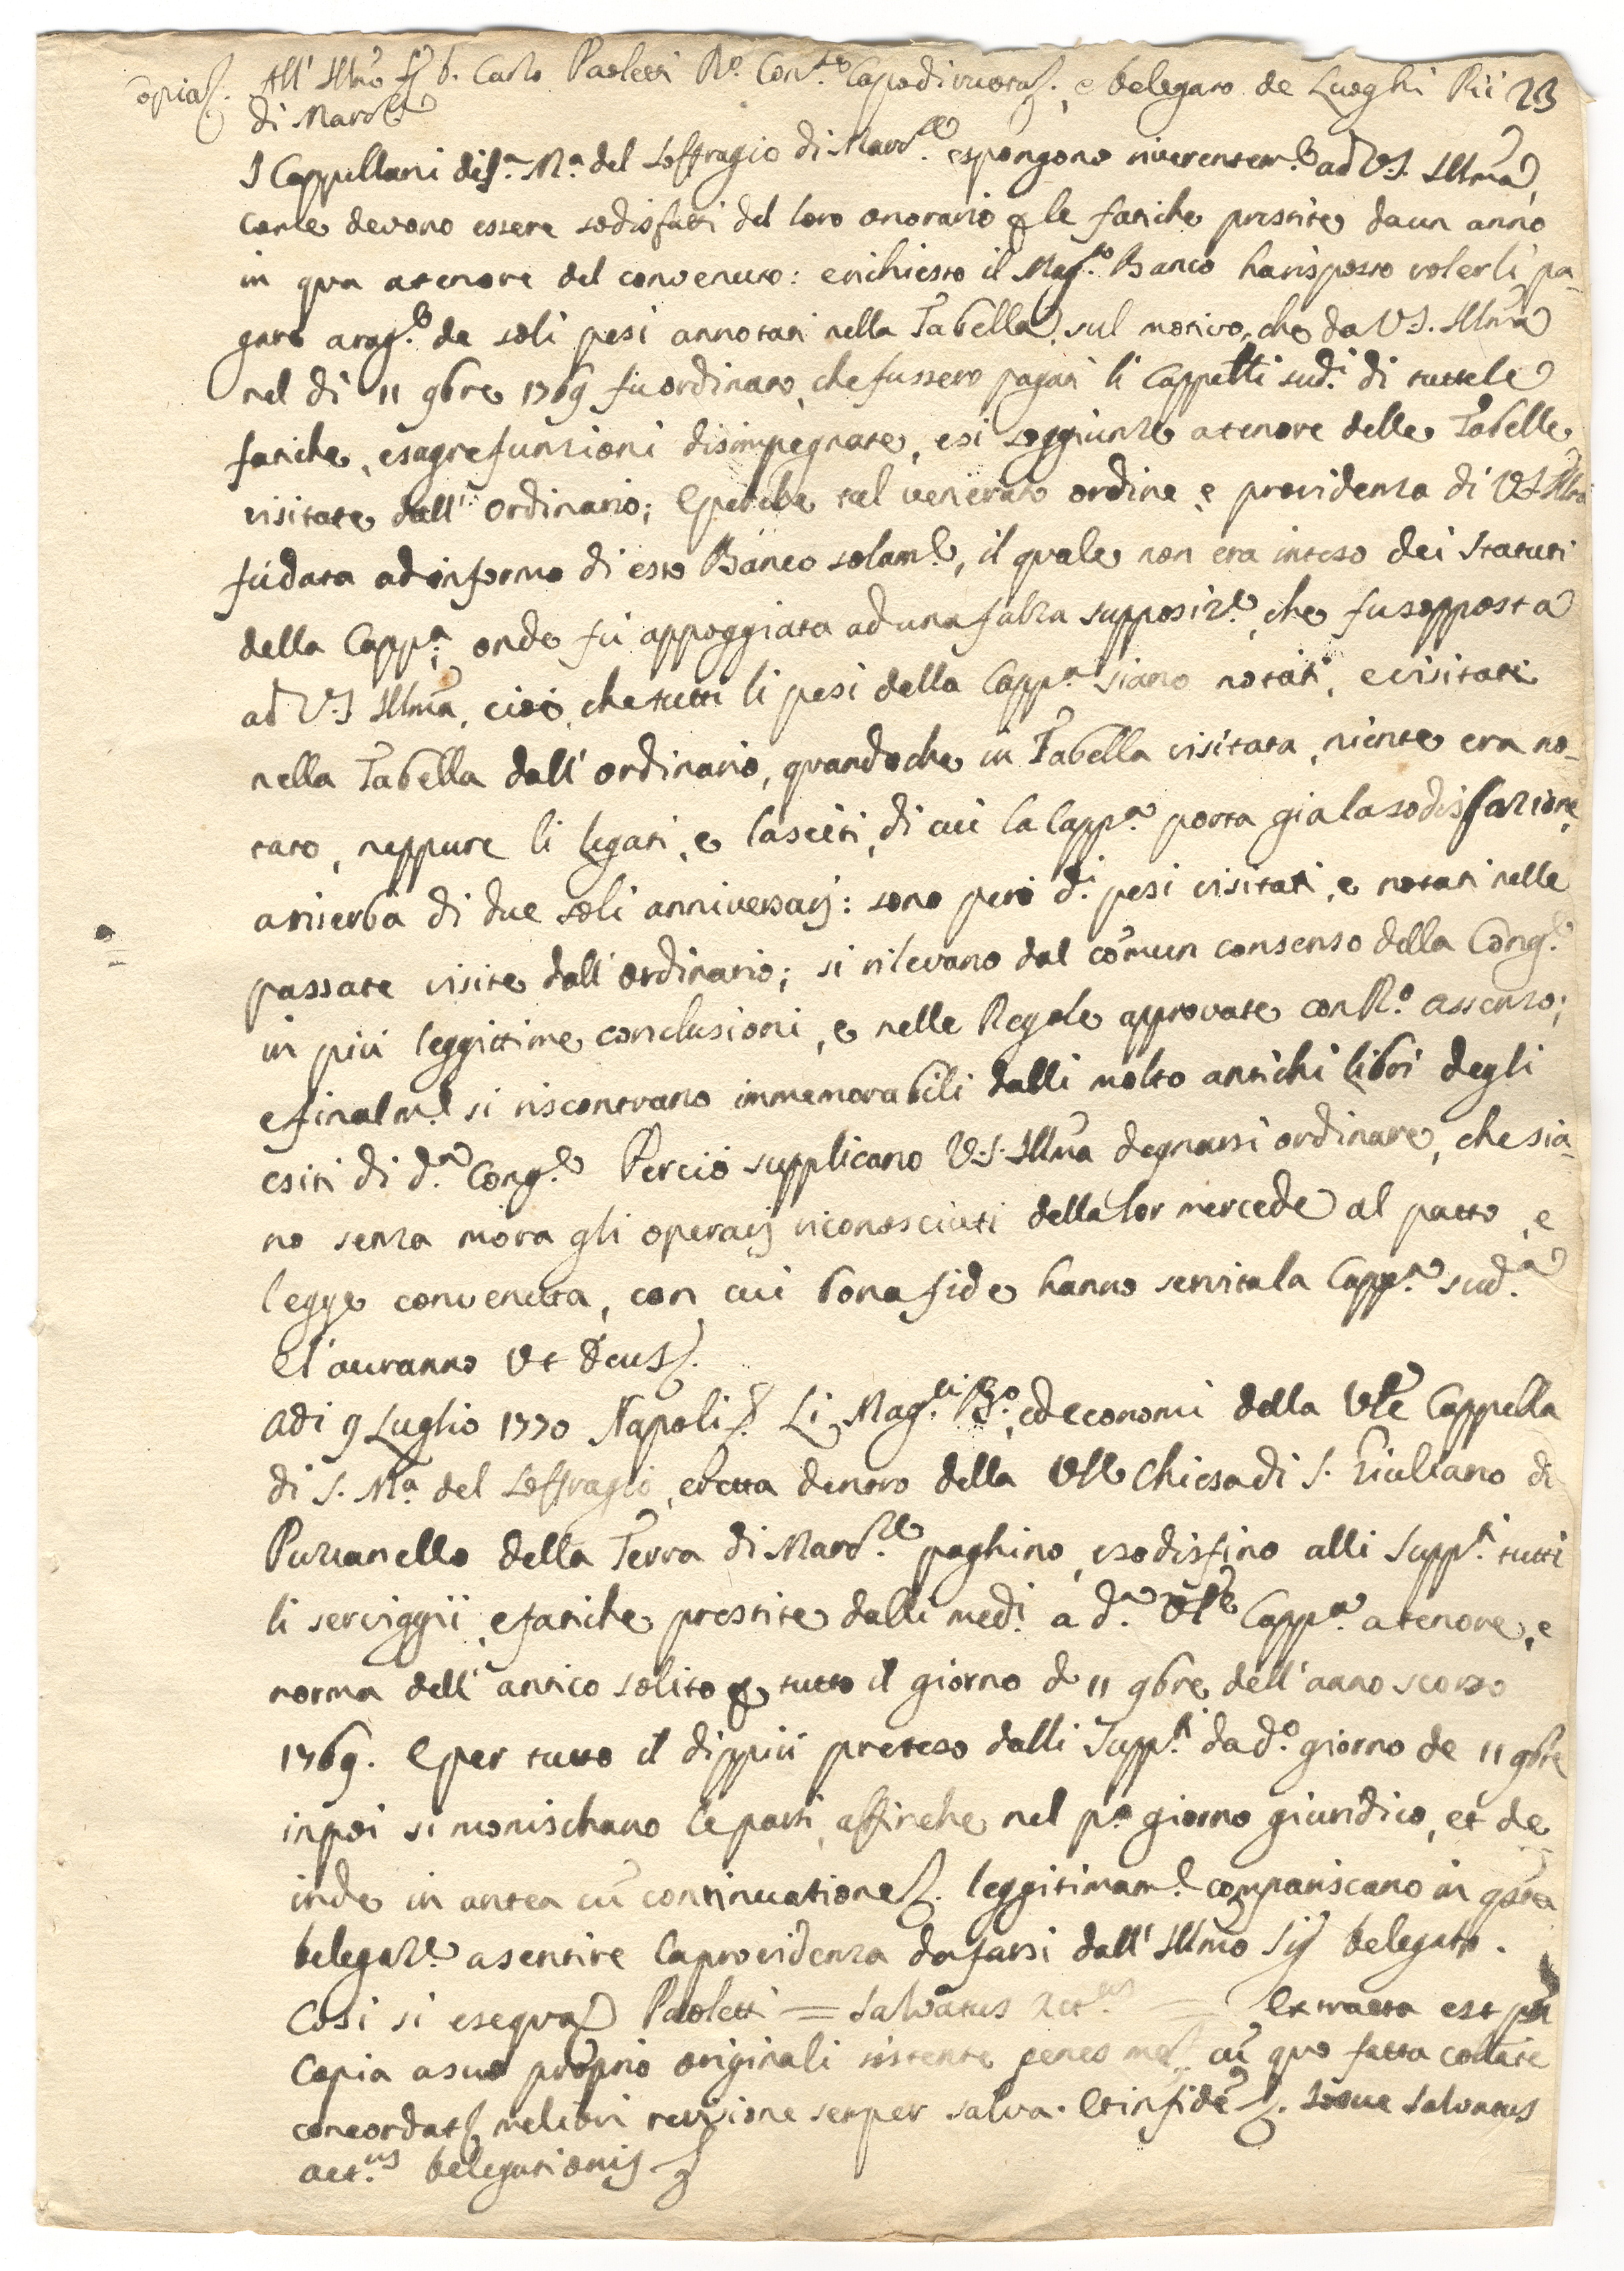 Copia All' Illmo Sig. D. Carlo Paoletti Ro. Con.re Capodiruota, e Delegato de Luoghi Pii 23
di Mard.le
I Cappellani di S.a M.a del Soffragio di Mard.le espongono riverentem.e ad V.S. Illma,
come devono essere sodisfatti del loro onorario per le fatiche prestite da un anno
in qua a tenore del convenuto: e richiesto il Mag.co Banco ha risposto volerli pa-
gare a rag.e de soli pesi annotati nella Tabella, sul motivo, che da V.S. Illma
nel di 11 9bre 1769 fù ordinato, che fussero pagati li Cappell.i sud.i di tutte le
fatiche, e sagre funzioni disimpegnate, e si soggiunze a tenore delle Tabelle
visitate dall' ordinario; E perche tal venerato ordine, e providenza di V.S. Illma
fù data ad informo di esso Banco solam.e, il quale non era inteso dei Statuti
della Capp.a, onde fù appoggiata ad una falza supposiz.e, che fu sopposta
ad V.S Illma, cioè, che tutti li pesi della Capp.a siano notati, e visitati
nella Tabella dall' ordinario, quandoche in Tabella visitata, niente era no-
tato, neppure li legati, e lasciti, di cui la Capp.a porta già la sodisfazione,
a riserba di due soli anniversarj: sono però d.i pesi visitati, e notati nelle
passate visite dall' ordinario; si rilevano dal comun consenso della Cong.e
in più leggittime conclusioni, e nelle Regole approvate con R.o assenso;
e finalm.e si riscontrano immemorabili dalli molto antichi libri degli
esiti di d.a Cong.e Perciò supplicano V.S. Illma degnarsi ordinare, che sia-
no senza mora gli operarj riconosciuti della lor mercede al patto, e
legge convenuta, con cui bona fide hanno servita la Capp.a sud.a
E l'auranno Ut Deus.
A di 9 Luglio 1770 Napoli. Li Mag.ci Bo, ed economi della Vle Cappella
di S. Ma del Soffragio, eretta dentro della Vle Chiesa di S. Giuliano di
Puzzanello della Terra di Mard.le paghino, e sodisfino alli Supp.ti tutti
li serviggii, e fatiche prestite dalli med.i à d.a Vle Capp.a a tenore, e
norma dell' antico solito per tutto il giorno de 11 9bre dell' anno scorso
1769. E per tutto il dippiù preteso dalli Supp.ti da d.o giorno de 11 9bre
in poi si monischano le parti, affinche nel p.o giorno giuridico, et de
inde in antea cu continuatione. leggitimam.e compariscano in questa
Delegaz.e a sentire la providenza da farsi dall' Illmo Sig Delegato.
Cosi si esegua Paoletti = Salvatus act.us = Extracta est pns
Copia a suo proprio originali sistente penes me, cu quo facta collate
concordat, meliori revisione semper salva. Et in fide. Iosue Salvatus
act.us Delegationis